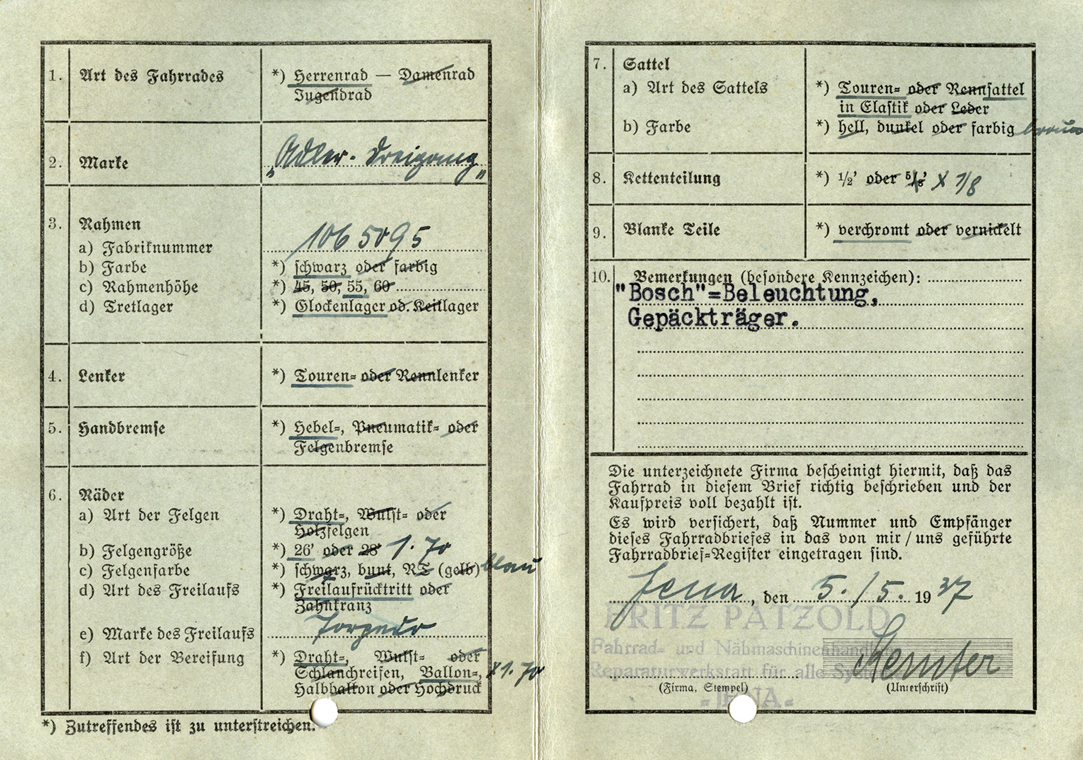 1. Art des Fahrrades *) Herrenrad — Damenrad
Jugendrad
2. Marke „Adler-Dreigang"
3. Rahmen
a) Fabriknummer 1065095
b) Farbe *) schwarz oder farbig
c) Rahmenhöhe *) 45, 50, 55, 60
d) Tretlager *) Glockenlager od. Keillager
4. Lenker *) Touren= oder Rennlenker
5. Handbremse *) Hebel=, Pneumatik= oder
Felgenbremse
6. Räder
a) Art der Felgen *) Draht=, Wulst= oder
Holzfelgen
b) Felgengröße *) 26' oder 28' 1.70
c) Felgenfarbe *) schwarz, bunt, NT (gelb) blau
d) Art des Freilaufs *) Freilaufrücktritt oder
Zahnkranz
e) Marke des Freilaufs Torpedo
f) Art der Bereifung *) Draht=, Wulst= oder
Schlauchreifen, Ballon=, x1.70
Halbballon oder Hochdruck
*) Zutreffendes ist zu unterstreichen.
7. Sattel
a) Art des Sattels *) Touren= oder Rennsattel
in Elastik oder Leder
b) Farbe *) hell, dunkel oder farbig braun
8. Kettenteilung *) ½' oder ⅝' x 1/8
9. Blanke Teile *) verchromt oder vernickelt
10. Bemerkungen (besondere Kennzeichen):
"Bosch"=Beleuchtung,
Gepäckträger.
Die unterzeichnete Firma bescheinigt hiermit, daß das
Fahrrad in diesem Brief richtig beschrieben und der
Kaufpreis voll bezahlt ist.
Es wird versichert, daß Nummer und Empfänger
dieses Fahrradbriefes in das von mir/uns geführte
Fahrradbrief=Register eingetragen sind.
Jena, den 5./5. 1937
FRITZ PÄTZOLD
Fahrrad- und Nähmaschinenhandlung
Reparaturwerkstatt für alle Systeme
- JENA -
(Firma, Stempel) (Unterschrift)